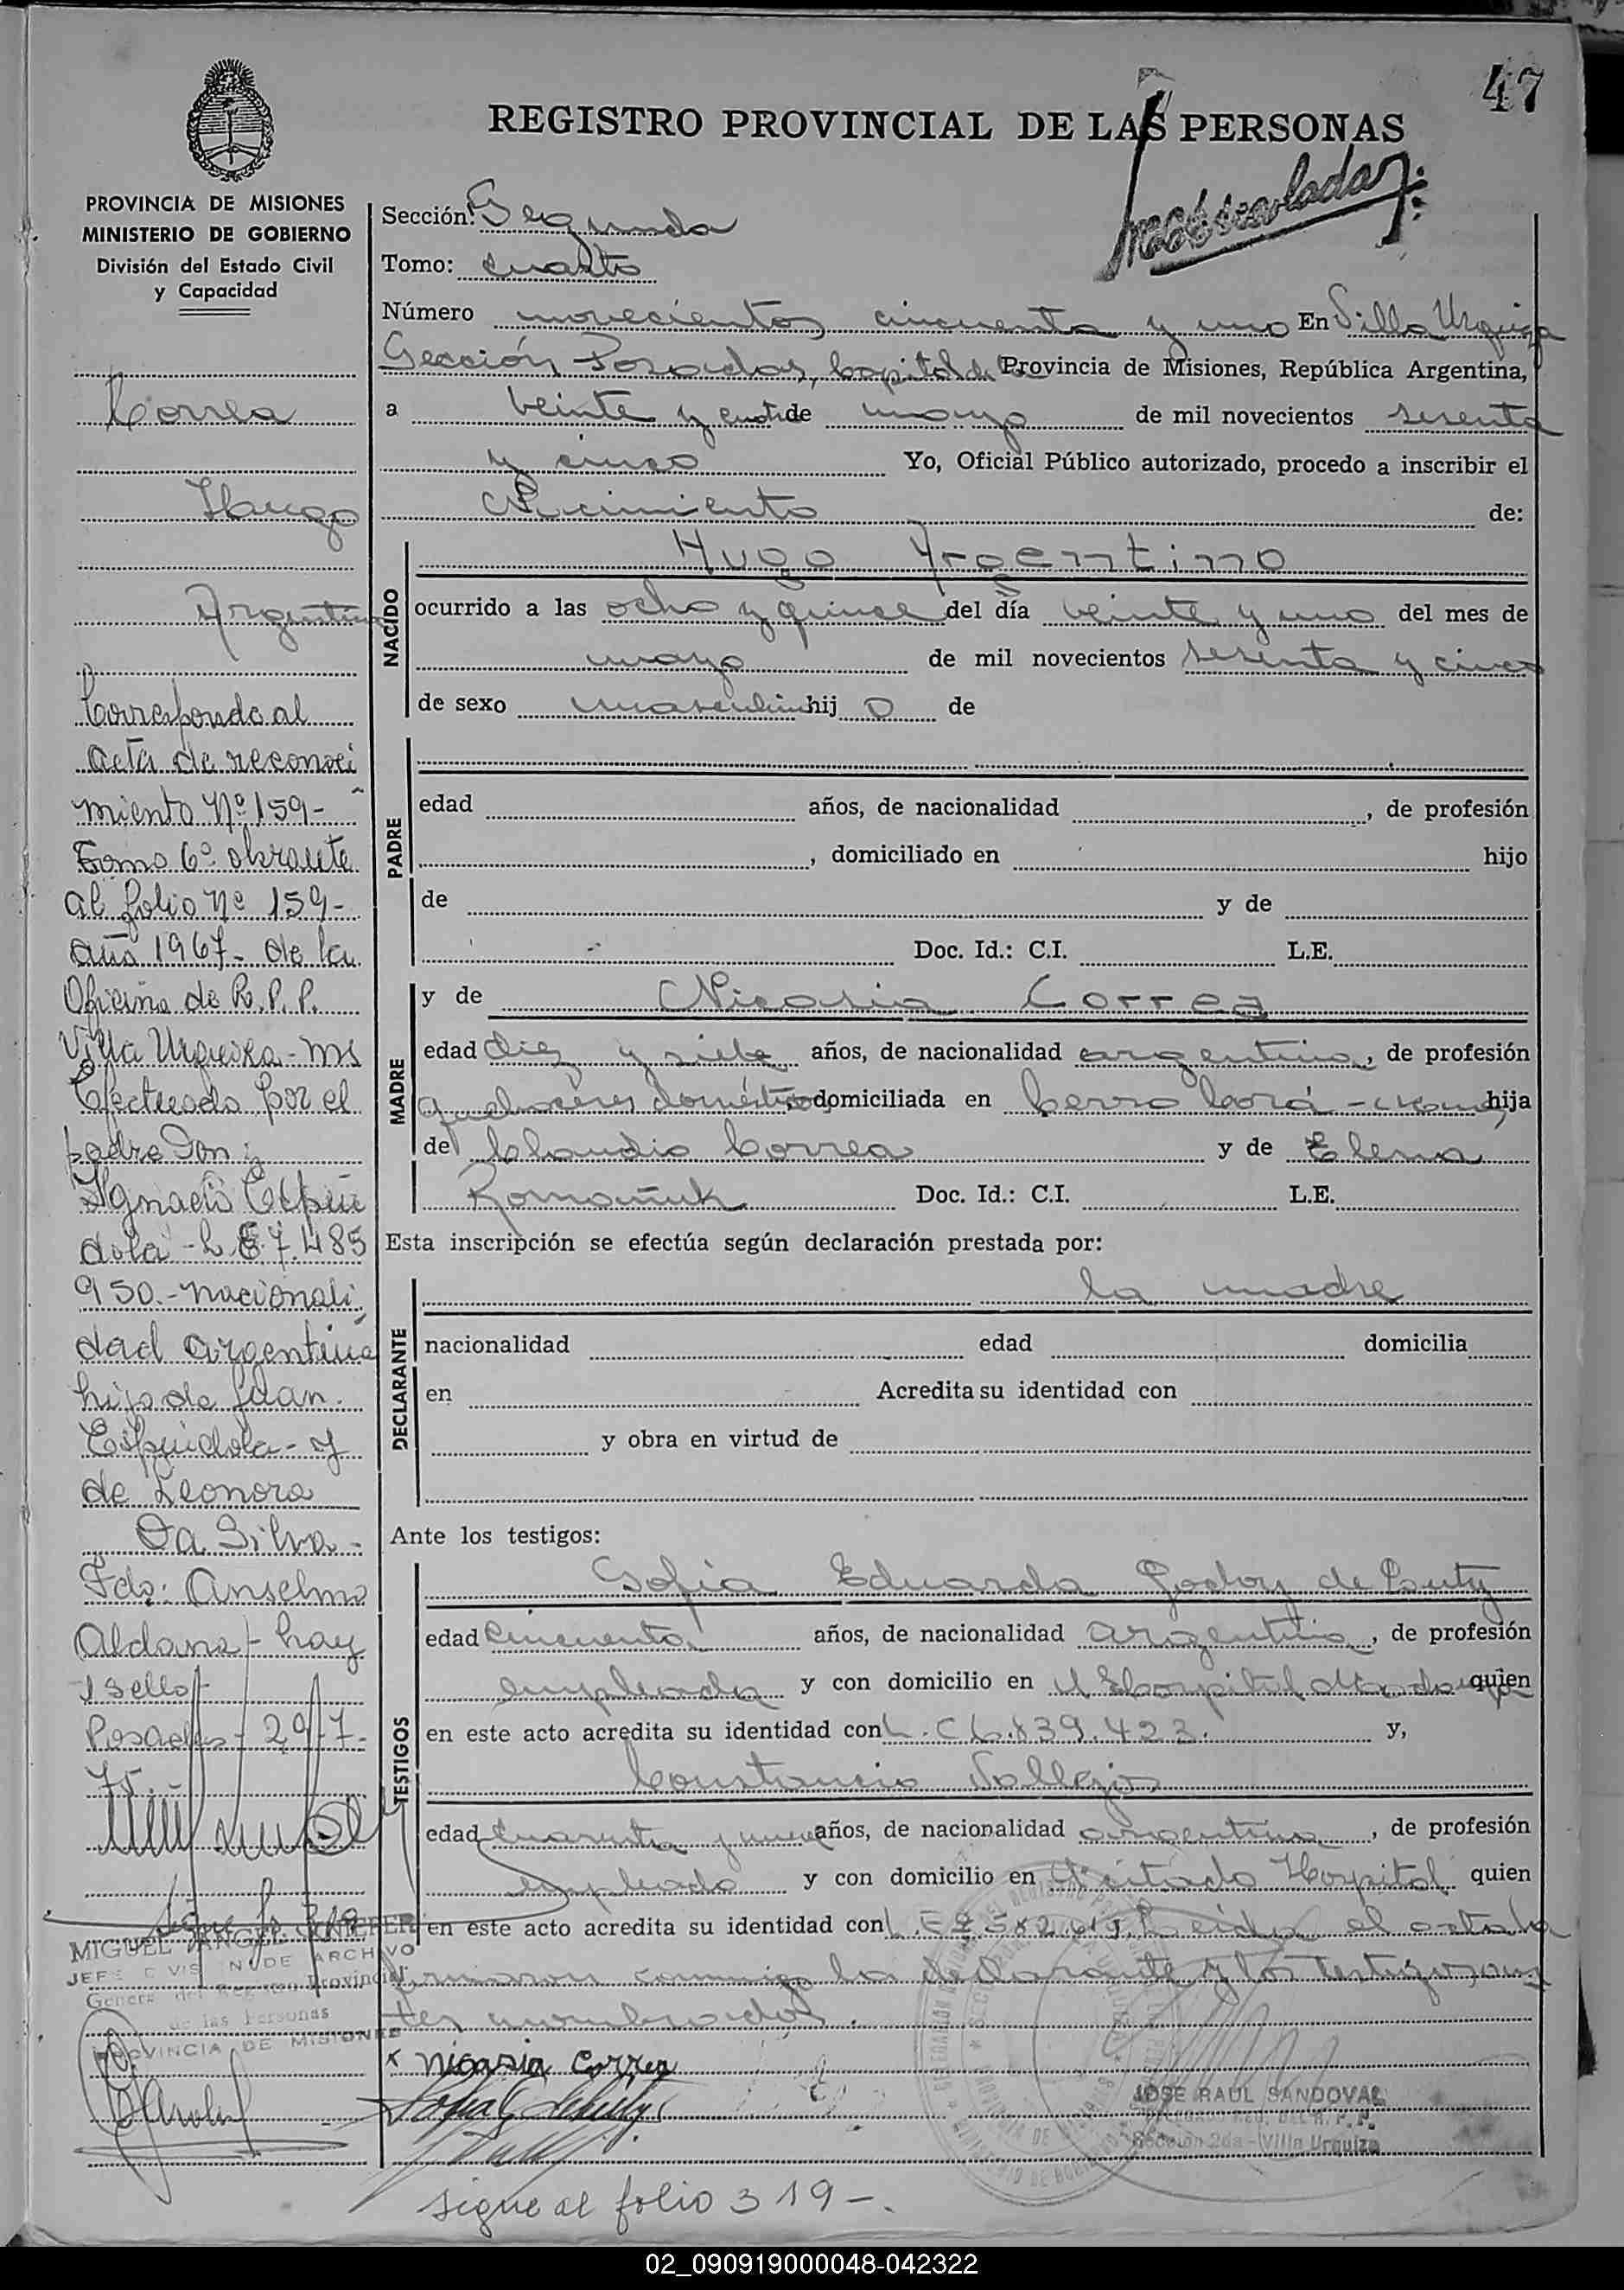 47
REGISTRO PROVINCIAL DE LAS PERSONAS
PROVINCIA DE MISIONES
MINISTERIO DE GOBIERNO
División del Estado Civil
y Capacidad
Correa
Hugo
Argentino
Corresponde al
acta de reconoci
miento Nº 159-
Tomo 6º obrante
al folio Nº 159-
año 1967- de la
Oficina de R.P.P.
Villa Urquiza - Ms
Efectuado por el
padre Don:
Ignacio Espín
dola - L.E. 7.485
950.- nacionali
dad argentina
hijo de Juan
Espíndola - y
de Leonora
Da Silva -
Fdo: Anselmo
Aldana - hay
1 sello -
Posadas - 29-7-
75.-
Sigue fo 319
MIGUEL ANGEL
JEFE DIVISION DE ARCHIVO
General del Registro Provincial
de las Personas
PROVINCIA DE MISIONES
Sección: Segunda
Tomo: cuarto
Número novecientos cincuenta y uno En Villa Urquiza
Sección Posadas, Capital de la Provincia de Misiones, República Argentina,
a veinte y cuatro de mayo de mil novecientos sesenta
y cinco Yo, Oficial Público autorizado, procedo a inscribir el
Nacimiento de:
NACIDO
Hugo Argentino
ocurrido a las ocho y quince del día veinte y uno del mes de
mayo de mil novecientos sesenta y cinco
de sexo masculino hijo de
PADRE
edad años, de nacionalidad , de profesión
, domiciliado en hijo
de y de
Doc. Id.: C.I. L.E.
MADRE
y de Nicasia Correa
edad diez y siete años, de nacionalidad argentina, de profesión
quehaceres domésticos domiciliada en Cerro Corá - hija
de Claudio Correa y de Elena
Romañuk Doc. Id.: C.I. L.E.
Esta inscripción se efectúa según declaración prestada por:
DECLARANTE
la madre
nacionalidad edad domicilia
en Acredita su identidad con
y obra en virtud de
Ante los testigos:
TESTIGOS
Sofia Eduarda Godoy de
edad cincuenta años, de nacionalidad argentina, de profesión
empleada y con domicilio en el Hospital quien
en este acto acredita su identidad con L.C 6.839.423. y,
Constancio Vallejos
edad cuarenta y nueve años, de nacionalidad argentina, de profesión
empleado y con domicilio en citado Hospital quien
en este acto acredita su identidad con L.E Leida el acta la
firmaron conmigo la declarante y los testigos an
tes nombrados.
x Nicasia Correa
JOSE RAUL SANDOVAL
Sección 2da - Villa Urquiza
sigue al folio 319-.
02_090919000048-042322